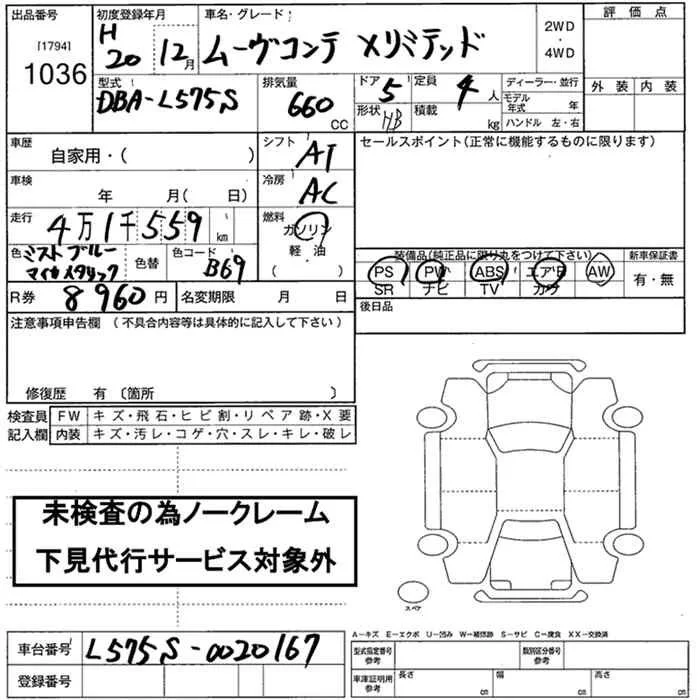 出品番号 初度登録年月 車名・グレード 評価点
[1794] H 2WD
1036 20 12月 ムーヴコンテ Xリミテッド ・
4WD
外装 内装
型式 排気量 ドア 5 定員 4人 ディーラー・並行
DBA-L575S 660 CC 形状 HB 積載 kg モデル年式 年
ハンドル 左・右
車歴 シフト セールスポイント(正常に機能するものに限ります)
自家用・( ) AT
車検 冷房
年 月( 日) AC
走行 4万1千559 km 燃料
ガソリン
色 ミストブルー 色替 色コード 軽・油 装備品(純正品に限り丸をつけて下さい) 新車保証書
マイカメタリック B69 ( ) PS PW ABS エアB AW 有・無
R券 8960円 名変期限 月 日 SR ナビ TV カワ
後日品
注意事項申告欄 (不具合内容等は具体的に記入して下さい)
修復歴 有 (箇所 )
検査員 FW キズ・飛石・ヒビ割・リペア跡・X要
記入欄 内装 キズ・汚レ・コゲ・穴・スレ・キレ・破レ
未検査の為ノークレーム
下見代行サービス対象外
スペア
A-キズ E-エクボ U-凹み W-補修跡 S-サビ C-腐食 XX-交換済
車台番号 L575S-0020167 型式指定番号 参考 類別区分番号 参考
登録番号 車庫証明用 参考 長さ cm 幅 cm 高さ cm